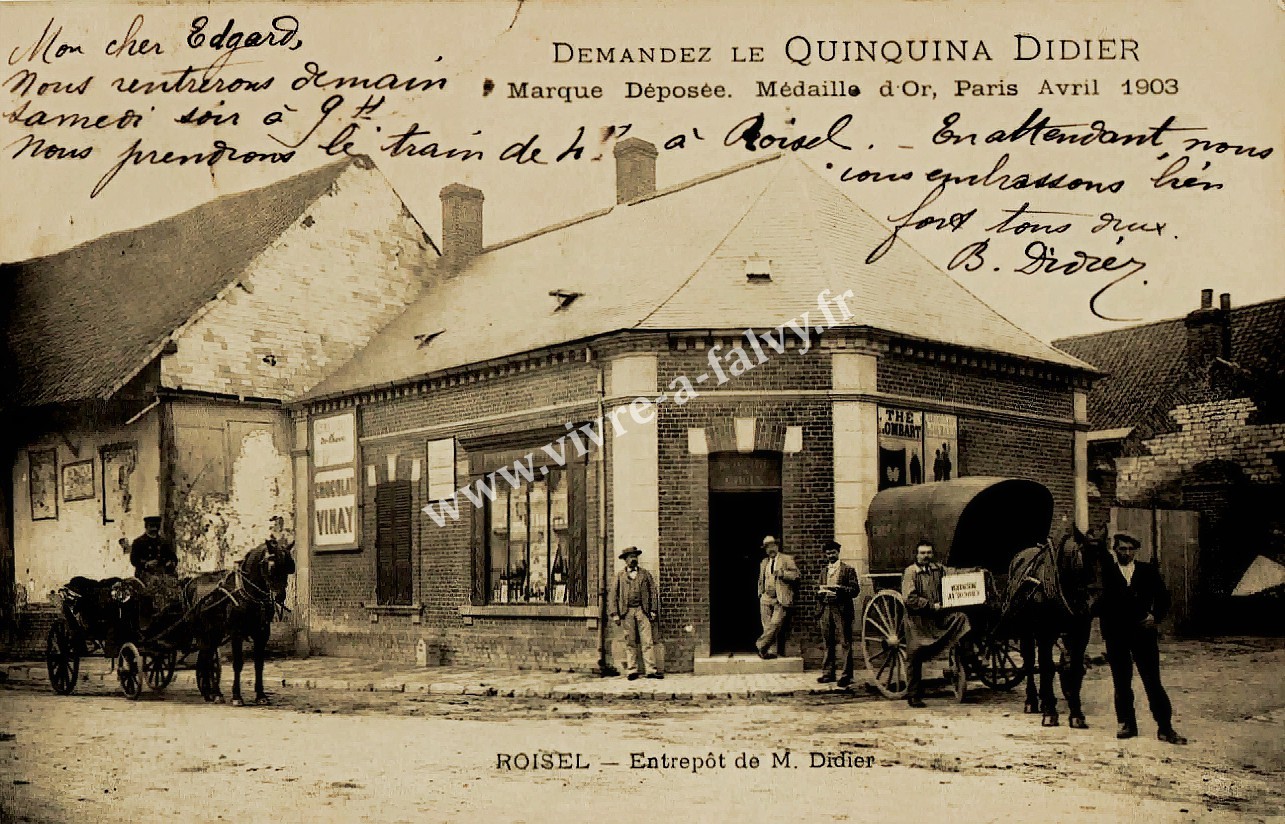 Mon cher Edgard,
Nous rentrerons demain
samedi soir à 9H
Nous prendrons le train de 4H à Roisel. - En attendant, nous
vous embrassons bien
fort tous deux.
B. Didier
DEMANDEZ LE QUINQUINA DIDIER
Marque Déposée. Médaille d'Or, Paris Avril 1903
www.vivre-a-falvy.fr
CHOCOLAT
VINAY
THE
LOMBART
ROISEL — Entrepôt de M. Didier